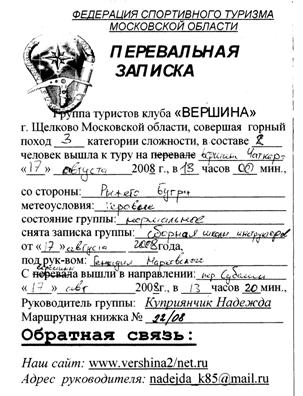 ФЕДЕРАЦИЯ СПОРТИВНОГО ТУРИЗМА
МОСКОВСКОЙ ОБЛАСТИ
ПЕРЕВАЛЬНАЯ
ЗАПИСКА
Группа туристов клуба «ВЕРШИНА»
г. Щелково Московской области, совершая горный
поход 3 категории сложности, в составе 2
человек вышла к туру на перевале вершин Чаткар
«17» августа 2008 г., в 13 часов 00 мин.,
со стороны: Рыжего Бугра
метеоусловия: хоровые
состояние группы: нормальное
снята записка группы: сборная школы инструкторов
от «17» августа 2008 года,
под рук-вом: Геннадия Марковского
С перевала вершины вышли в направлении: пер
«17» авг 2008г., в 13 часов 20 мин.,
Руководитель группы: Куприянчик Надежда
Маршрутная книжка № 22/08
Обратная связь:
Наш сайт: www.vershina2/net.ru
Адрес руководителя: nadejda_k85@mail.ru